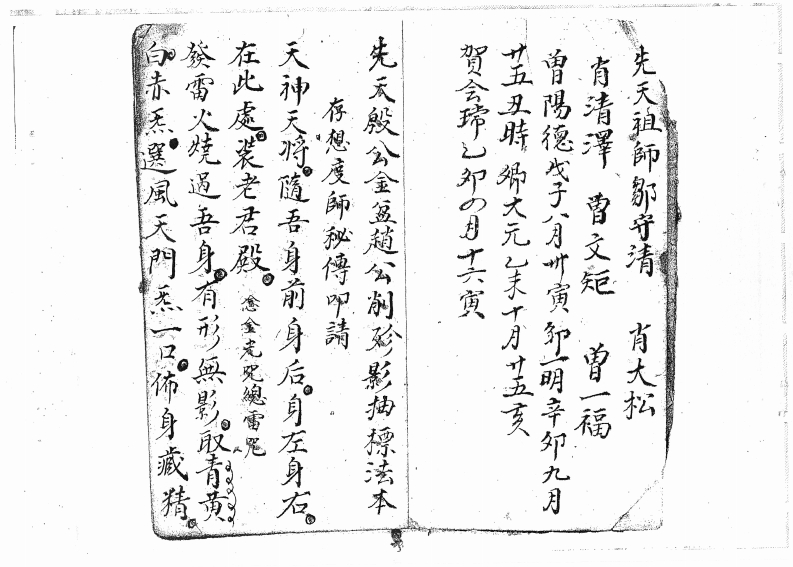 先天祖師鄒守清 肖大松
肖清澤 曾文矩 曾一福
曾陽德戊子八月卅寅 卿一明辛卯九月
廿五丑時 卿大元乙未十月廿五亥
賀会 乙卯四月十六寅
先天殷公金盆趙公削 影抽標法本
存想度師秘傳叩請
天神天将隨吾身前身后身左身右
在此處裝老君殿 念金光咒總雷咒
發雷火燒過吾身有形無影取青黄
白赤炁選風天門炁一口佈身藏精